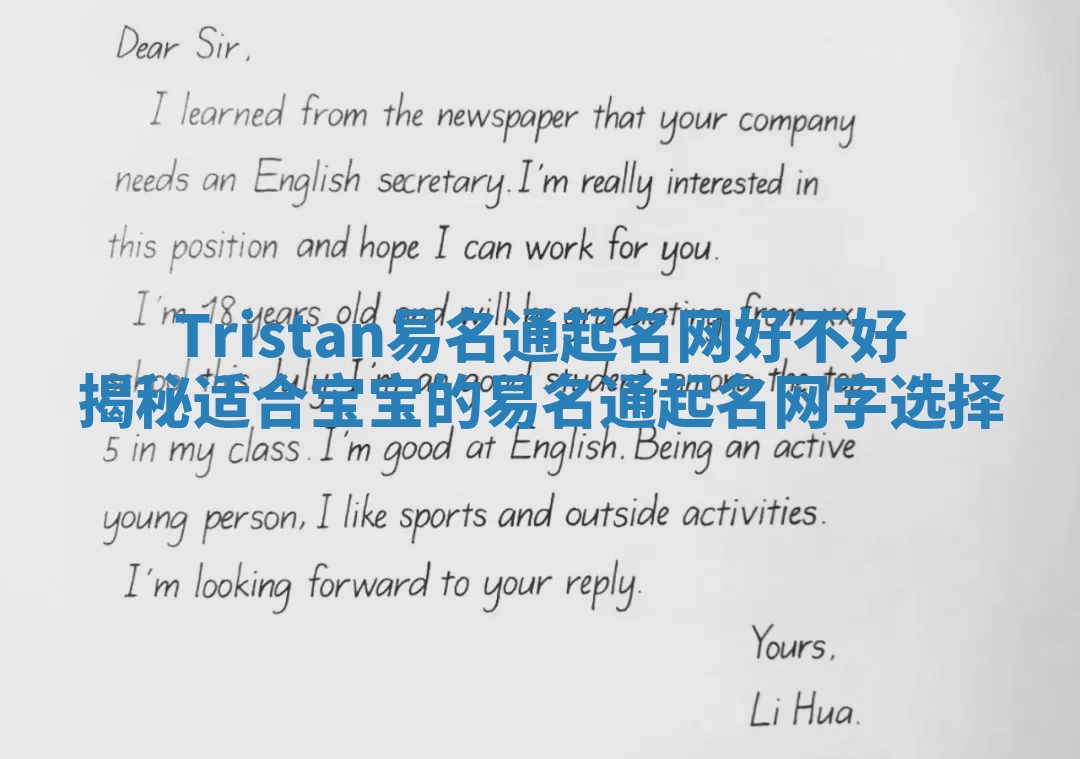 Dear Sir,
I learned from the newspaper that your company
needs an English secretary. I'm really interested in
this position and hope I can work for you.
I'm 18 years old and will be graduating from xx
Tristan易名通起名网好不好
school this July. I'm an good student among the top
揭秘适合宝宝的易名通起名网字选择
5 in my class. I'm good at English. Being an active
young person, I like sports and outside activities.
I'm looking forward to your reply.
Yours,
Li Hua.